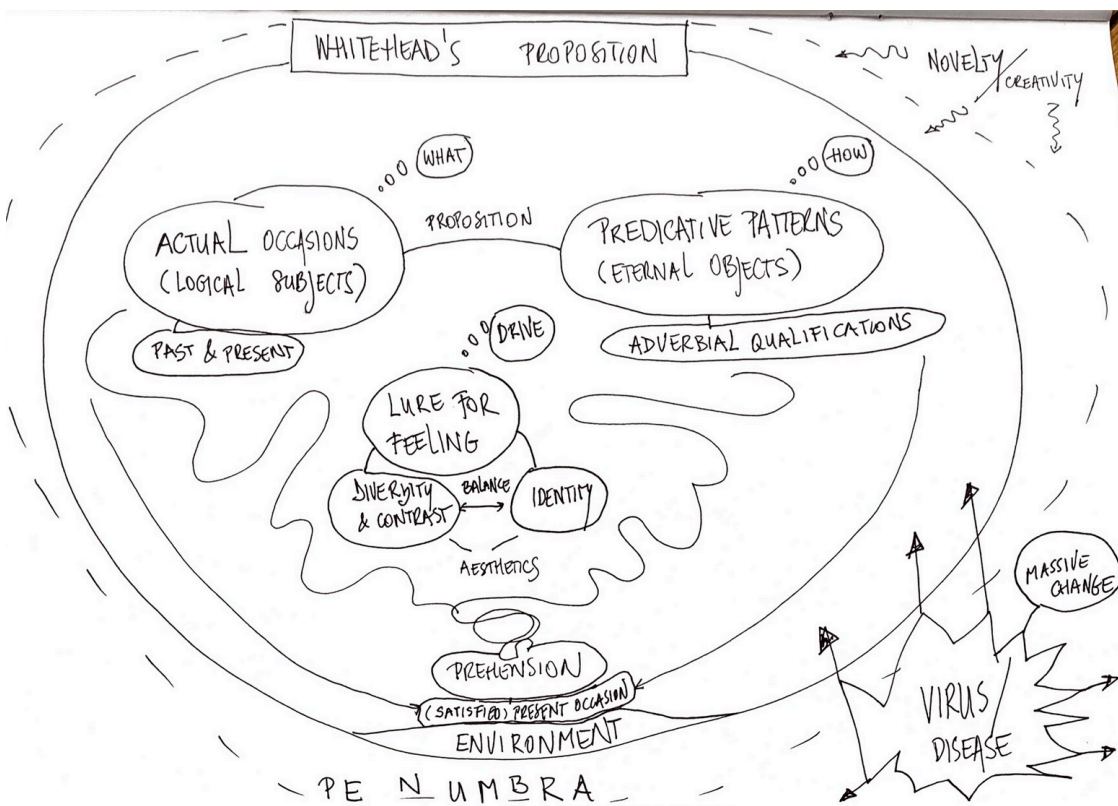 WHITEHEAD'S PROPOSITION
NOVELTY/CREATIVITY
WHAT
HOW
ACTUAL OCCASIONS
(LOGICAL SUBJECTS)
PROPOSITION
PREDICATIVE PATTERNS
(ETERNAL OBJECTS)
PAST & PRESENT
ADVERBIAL QUALIFICATIONS
DRIVE
LURE FOR
FEELING
DIVERSITY
& CONTRAST
BALANCE
IDENTITY
AESTHETICS
MASSIVE
CHANGE
PREHENSION
(SATISFIED) PRESENT OCCASION
ENVIRONMENT
VIRUS
DISEASE
PENUMBRA